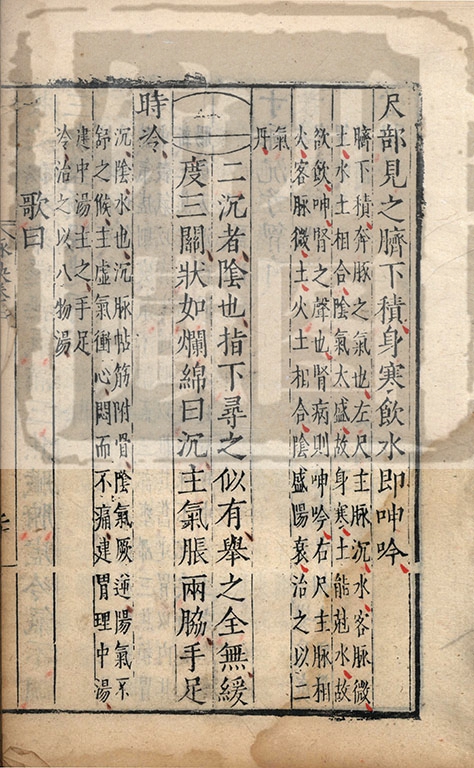 尺部見之臍下積身寒飲水即呻吟
臍下積奔豚之氣也左尺主脉沉水客脉微
土水土相合陰氣大盛故身寒土能尅水故
欲飲呻腎之聲也腎病則呻吟右尺主脉相
火客脉微土火土相合陰盛陽衰治之以二
氣丹
二沉者陰也指下尋之似有舉之全無緩
度三關狀如爛綿曰沉主氣脹兩脇手足
時冷
沉陰水也沉脉帖筋附骨陰氣厥逆陽氣不
舒之候主虛氣衝心悶而不痛建胃理中湯
建中湯主之手足
冷治之以八物湯
歌曰